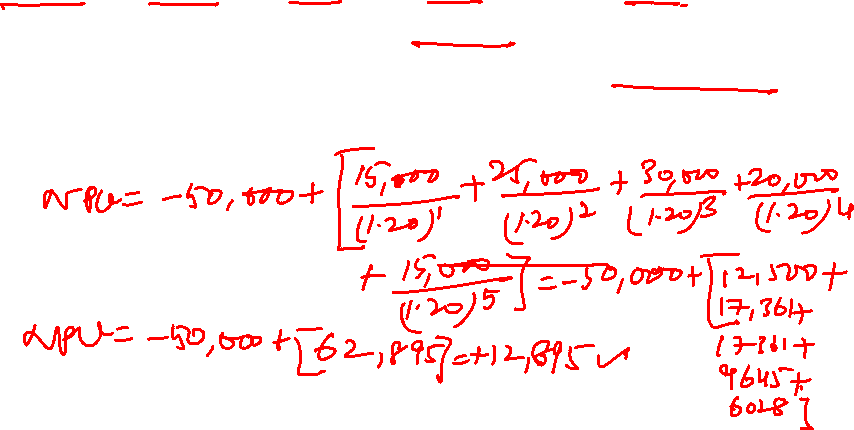 NPV = -50,000 + [15,000/(1.20)^1 + 25,000/(1.20)^2 + 30,000/(1.20)^3 + 20,000/(1.20)^4
+ 15,000/(1.20)^5] = -50,000 + [12,500 +
17,361+
17361+
9645+
6028]
NPV = -50,000 + [62,895] = +12,895 ✓